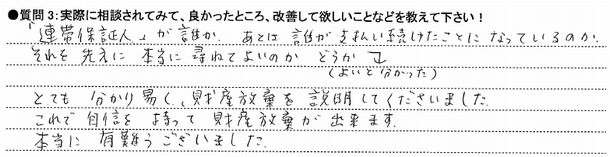 ●質問3:実際に相談されてみて、良かったところ、改善して欲しいことなどを教えて下さい!
「連帯保証人」が誰か、あとは誰が支払い続けたことになっているのか、
それを先方に本当に尋ねてよいのかどうか
(よいと分かった)
とても分かり易く、財産放棄を説明してくださいました。
これで自信を持って財産放棄が出来ます。
本当に有難うございました。